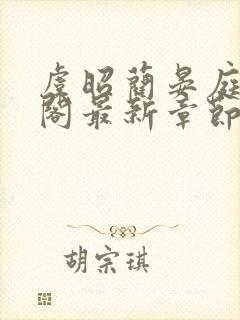 虞昭蔺晏庭
阁最新章节
胡宗琪